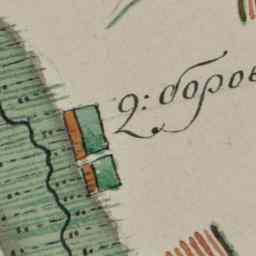 2: боров